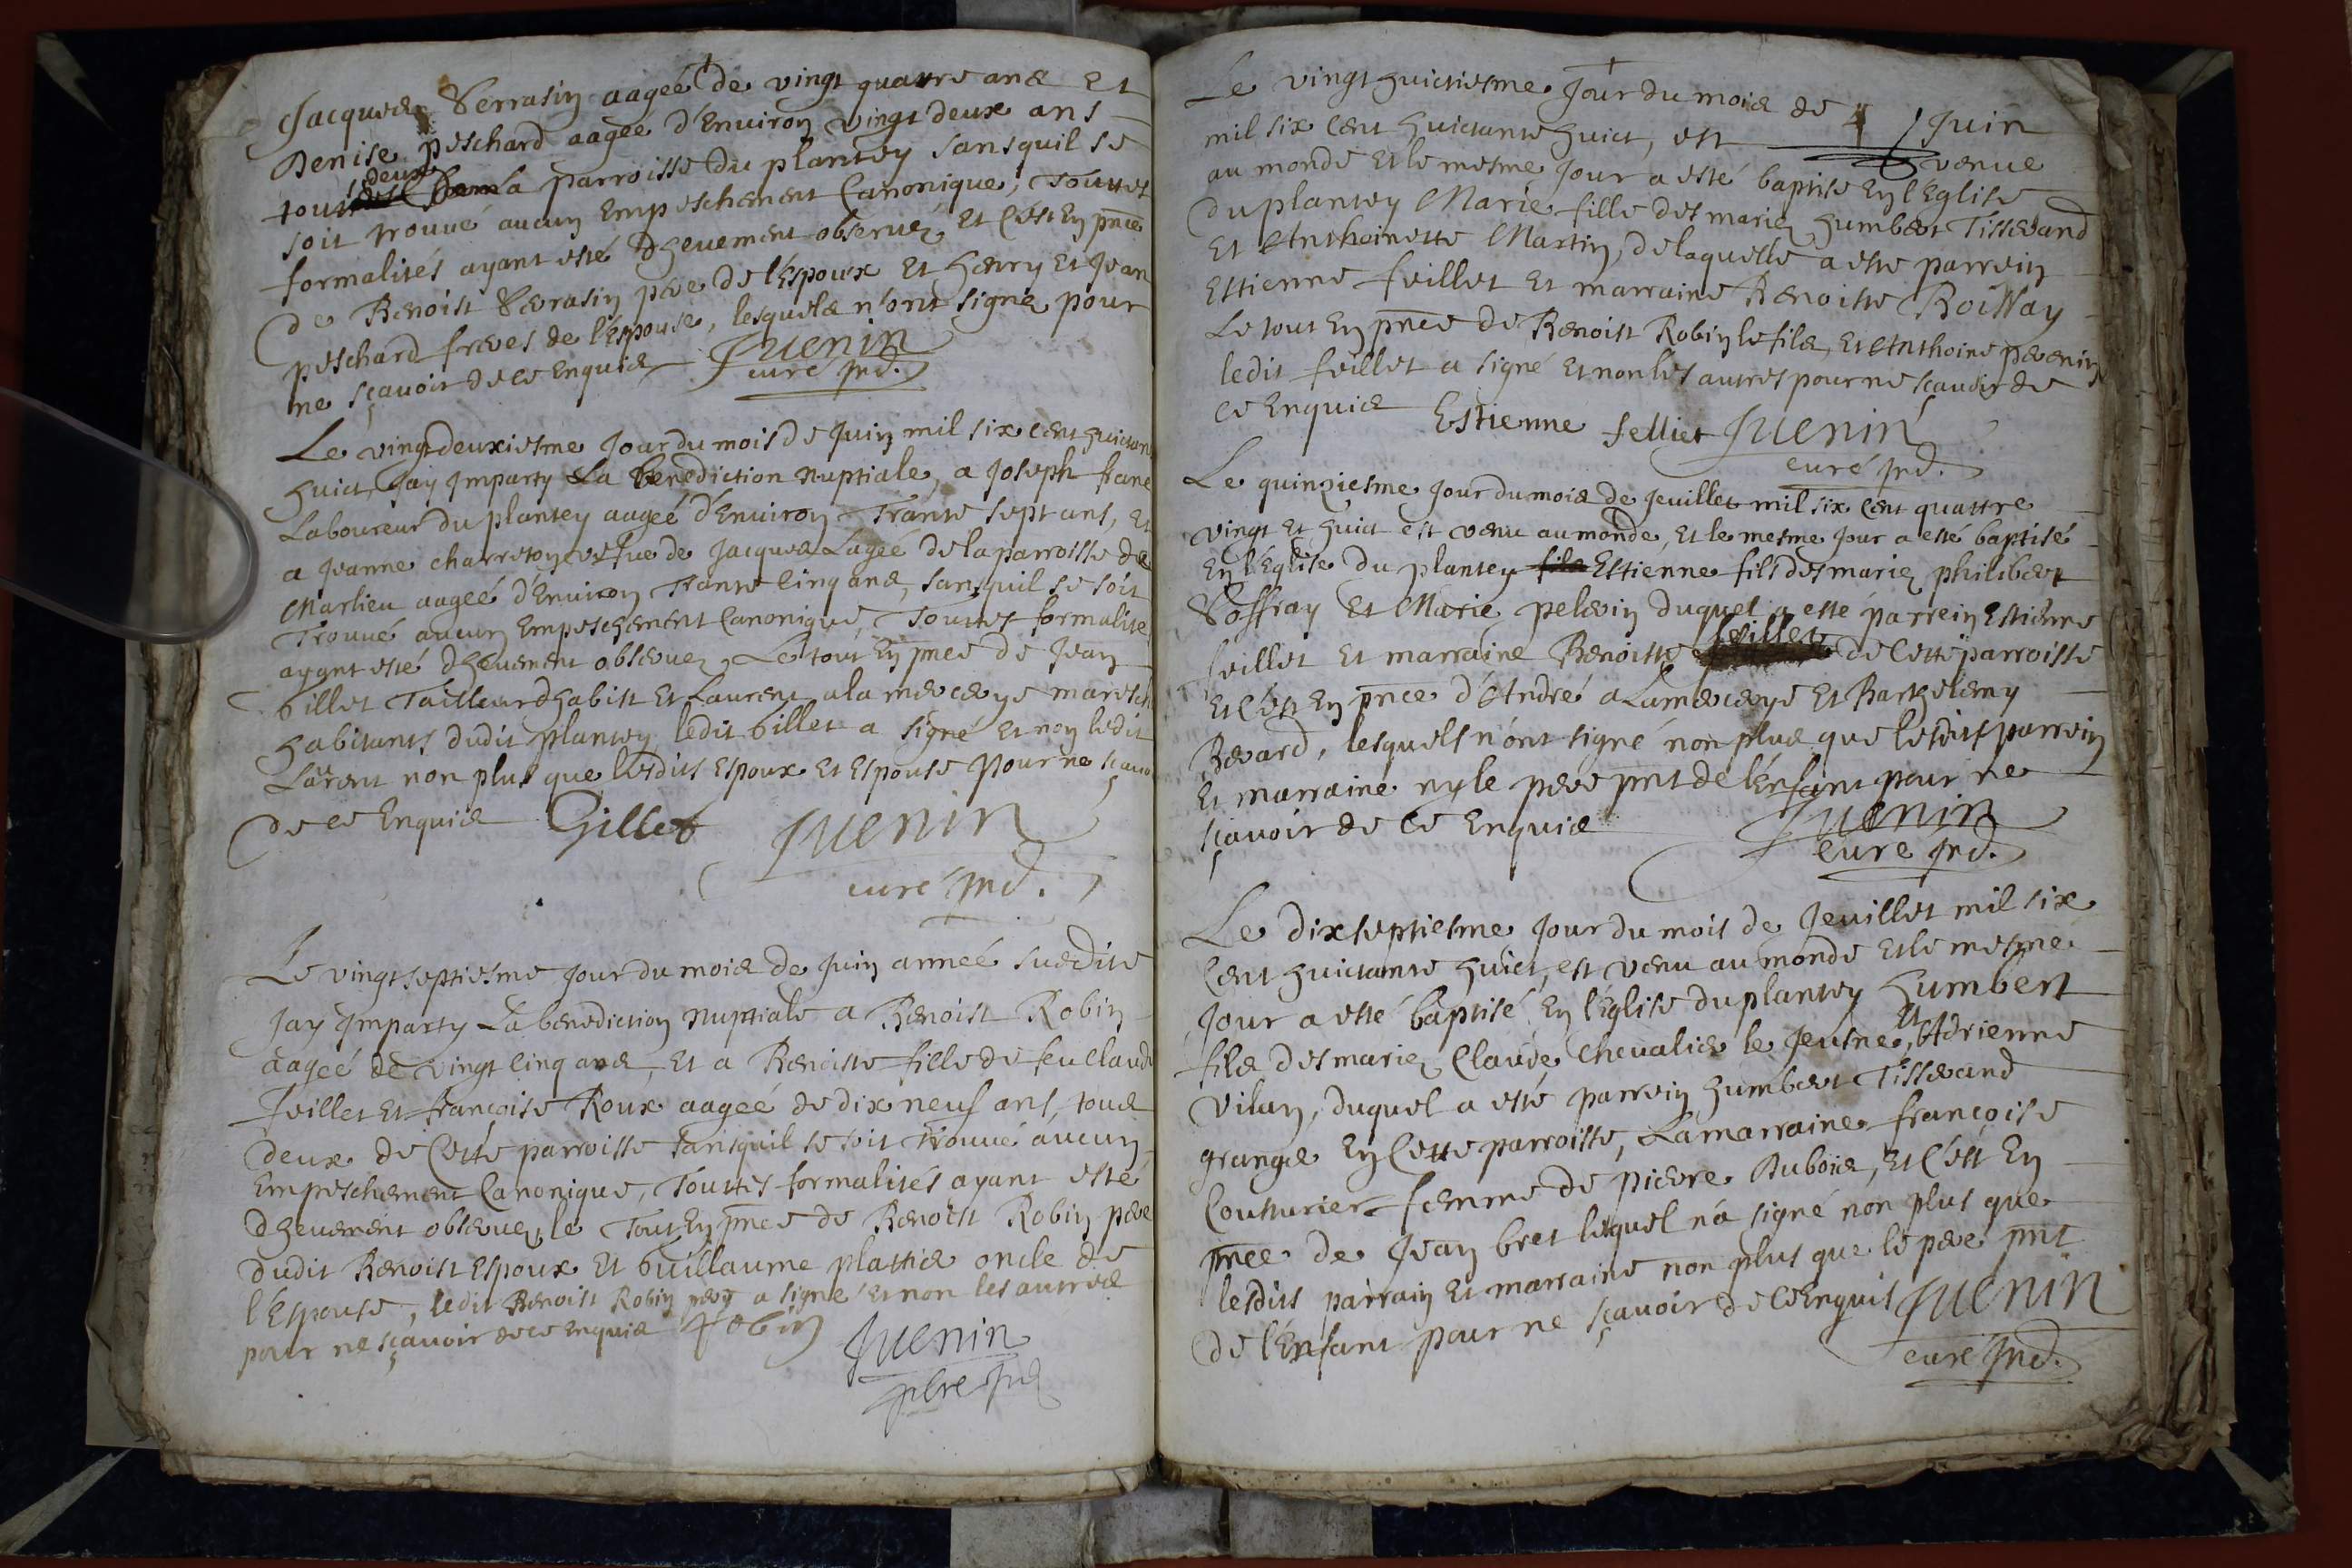 Jacques Serrasin aageé de vingt quatre ans et
Denise peschard aageé d'Environ vingt deux ans
tous deux de la parroisse du plantey sans quil se
soit trouvé aucun Empeschement Canonique, Touttes
formalités ayant esté dheuement observéz, Et c'est En pnce
de Benoist Serrasin pere de l'Espoux Et henry Et Jean
peschard freres de l'Espouse, lesquels n'ont signe pour
ne sçavoir de ce Enquis Juenin
curé Ind.
Le vingtdeuxiesme Jour du mois de Juin mil six cent huictante
huict, Jay Imparty La benediction nuptiale, a Joseph franc
Laboureur du plantey aageé d'Environ Trante sept ans, Et
a Jeanne charreton vefue de Jacques Lageé de la parroisse de
Marlieu aageé d'Environ Trante cinq ans, sans quil se soit
Trouvé aucun Empeschement Canonique, Touttes formalite
ayant esté dheuement observez, Le tout En pnce de Jean
Gillet Tailleur d'habist Et Laurent alamercerye maresch
habitants dudit plantey ledit Gillet a signé Et non ledit
Laurent non plus que lesdits Espoux Et Espouse pour ne sçavo
de ce Enquis Gillet Juenin
curé Ind.
Le vingtseptiesme Jour du mois de Juin anneé susdite
Jay Imparty La benediction nuptiale a Benoist Robin
aageé de vingt cinq ans, Et a Benoiste fille de feu Claude
feillet Et françoise Roux aageé de dix neuf ans, tous
deux de Cette parroisse sans quil se soit trouvé aucun
Empeschement Canonique, Touttes formalités ayant esté
dheuement observez, le Tout En pnce de Benoist Robin pere
dudit Benoist Espoux Et Guillaume plattier oncle de
l'Espouse, ledit Benoist Robin pere a signé Et non les autres
pour ne sçavoir de ce enquis Robin Juenin
pbre Ind
Le vingt huictiesme Jour du mois de Juin
mil six cent huictante huict, est venue
au monde Et le mesme Jour a esté baptise En l'Eglise
du plantey Marie fille des mariez humbert Tisserand
Et Anthoinette Martin, de laquelle a este parrein
Estienne feillet Et marraine Benoiste Boissay
Le tout En pnce de Benoist Robin le fils, Et Anthoine pevenin
ledit feillet a signé Et non les autres pour ne sçavoir de
ce Enquis Estienne felliet Juenin
curé Ind.
Le quinziesme Jour du mois de Jeuillet mil six cent quattre
vingt Et huict est venu au monde, Et le mesme Jour a esté baptisé
En l'Eglise du plantey fils Estienne fils des mariez philibert
Soffray Et Marie pelerin duquel a esté parrein Estienne
feillet Et marraine Benoiste feillet de Cette parroisse
Et c'est En pnce d'André aLamercerye Et Barthelemy
Berard, lesquels n'ont signé non plus que lesdits parrein
Et marraine ny le pere pnt de l'Enfant pour ne
sçavoir de ce Enquis Juenin
Curé Ind.
Le dixseptiesme Jour du mois de Jeuillet mil six
Cent huictante huict, est venu au monde Et le mesme
Jour a esté baptisé En l'Eglise du plantey humbert
fils des mariez Claude Chevalier le Jeusne, Et Adrienne
vilan, duquel a esté parrein humbert Tisserand
granger En Cette parroisse, La marraine françoise
Couturier femme de pierre Dubois, Et c'est En
pnce de Jean bret lequel n'a signé non plus que
lesdits parrain Et marraine non plus que le pere pnt
de l'Enfant pour ne sçavoir de ce Enquis Juenin
curé Ind.